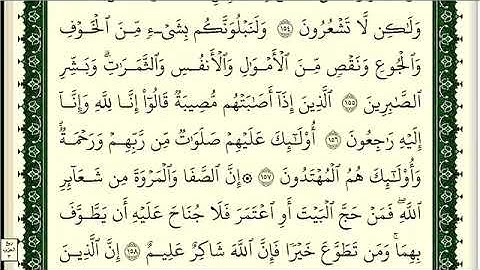 وَلَٰكِن لَّا تَشْعُرُونَ ١٥٤ وَلَنَبْلُوَنَّكُم بِشَىْءٍ مِّنَ ٱلْخَوْفِ
وَٱلْجُوعِ وَنَقْصٍ مِّنَ ٱلْأَمْوَٰلِ وَٱلْأَنفُسِ وَٱلثَّمَرَٰتِ ۗ وَبَشِّرِ
ٱلصَّٰبِرِينَ ١٥٥ ٱلَّذِينَ إِذَآ أَصَٰبَتْهُم مُّصِيبَةٌ قَالُوٓا۟ إِنَّا لِلَّهِ وَإِنَّآ
إِلَيْهِ رَٰجِعُونَ ١٥٦ أُو۟لَٰٓئِكَ عَلَيْهِمْ صَلَوَٰتٌ مِّن رَّبِّهِمْ وَرَحْمَةٌ ۖ
وَأُو۟لَٰٓئِكَ هُمُ ٱلْمُهْتَدُونَ ١٥٧ ۞ إِنَّ ٱلصَّفَا وَٱلْمَرْوَةَ مِن شَعَآئِرِ
ٱللَّهِ ۖ فَمَنْ حَجَّ ٱلْبَيْتَ أَوِ ٱعْتَمَرَ فَلَا جُنَاحَ عَلَيْهِ أَن يَطَّوَّفَ
بِهِمَا ۚ وَمَن تَطَوَّعَ خَيْرًا فَإِنَّ ٱللَّهَ شَاكِرٌ عَلِيمٌ ١٥٨ إِنَّ ٱلَّذِينَ